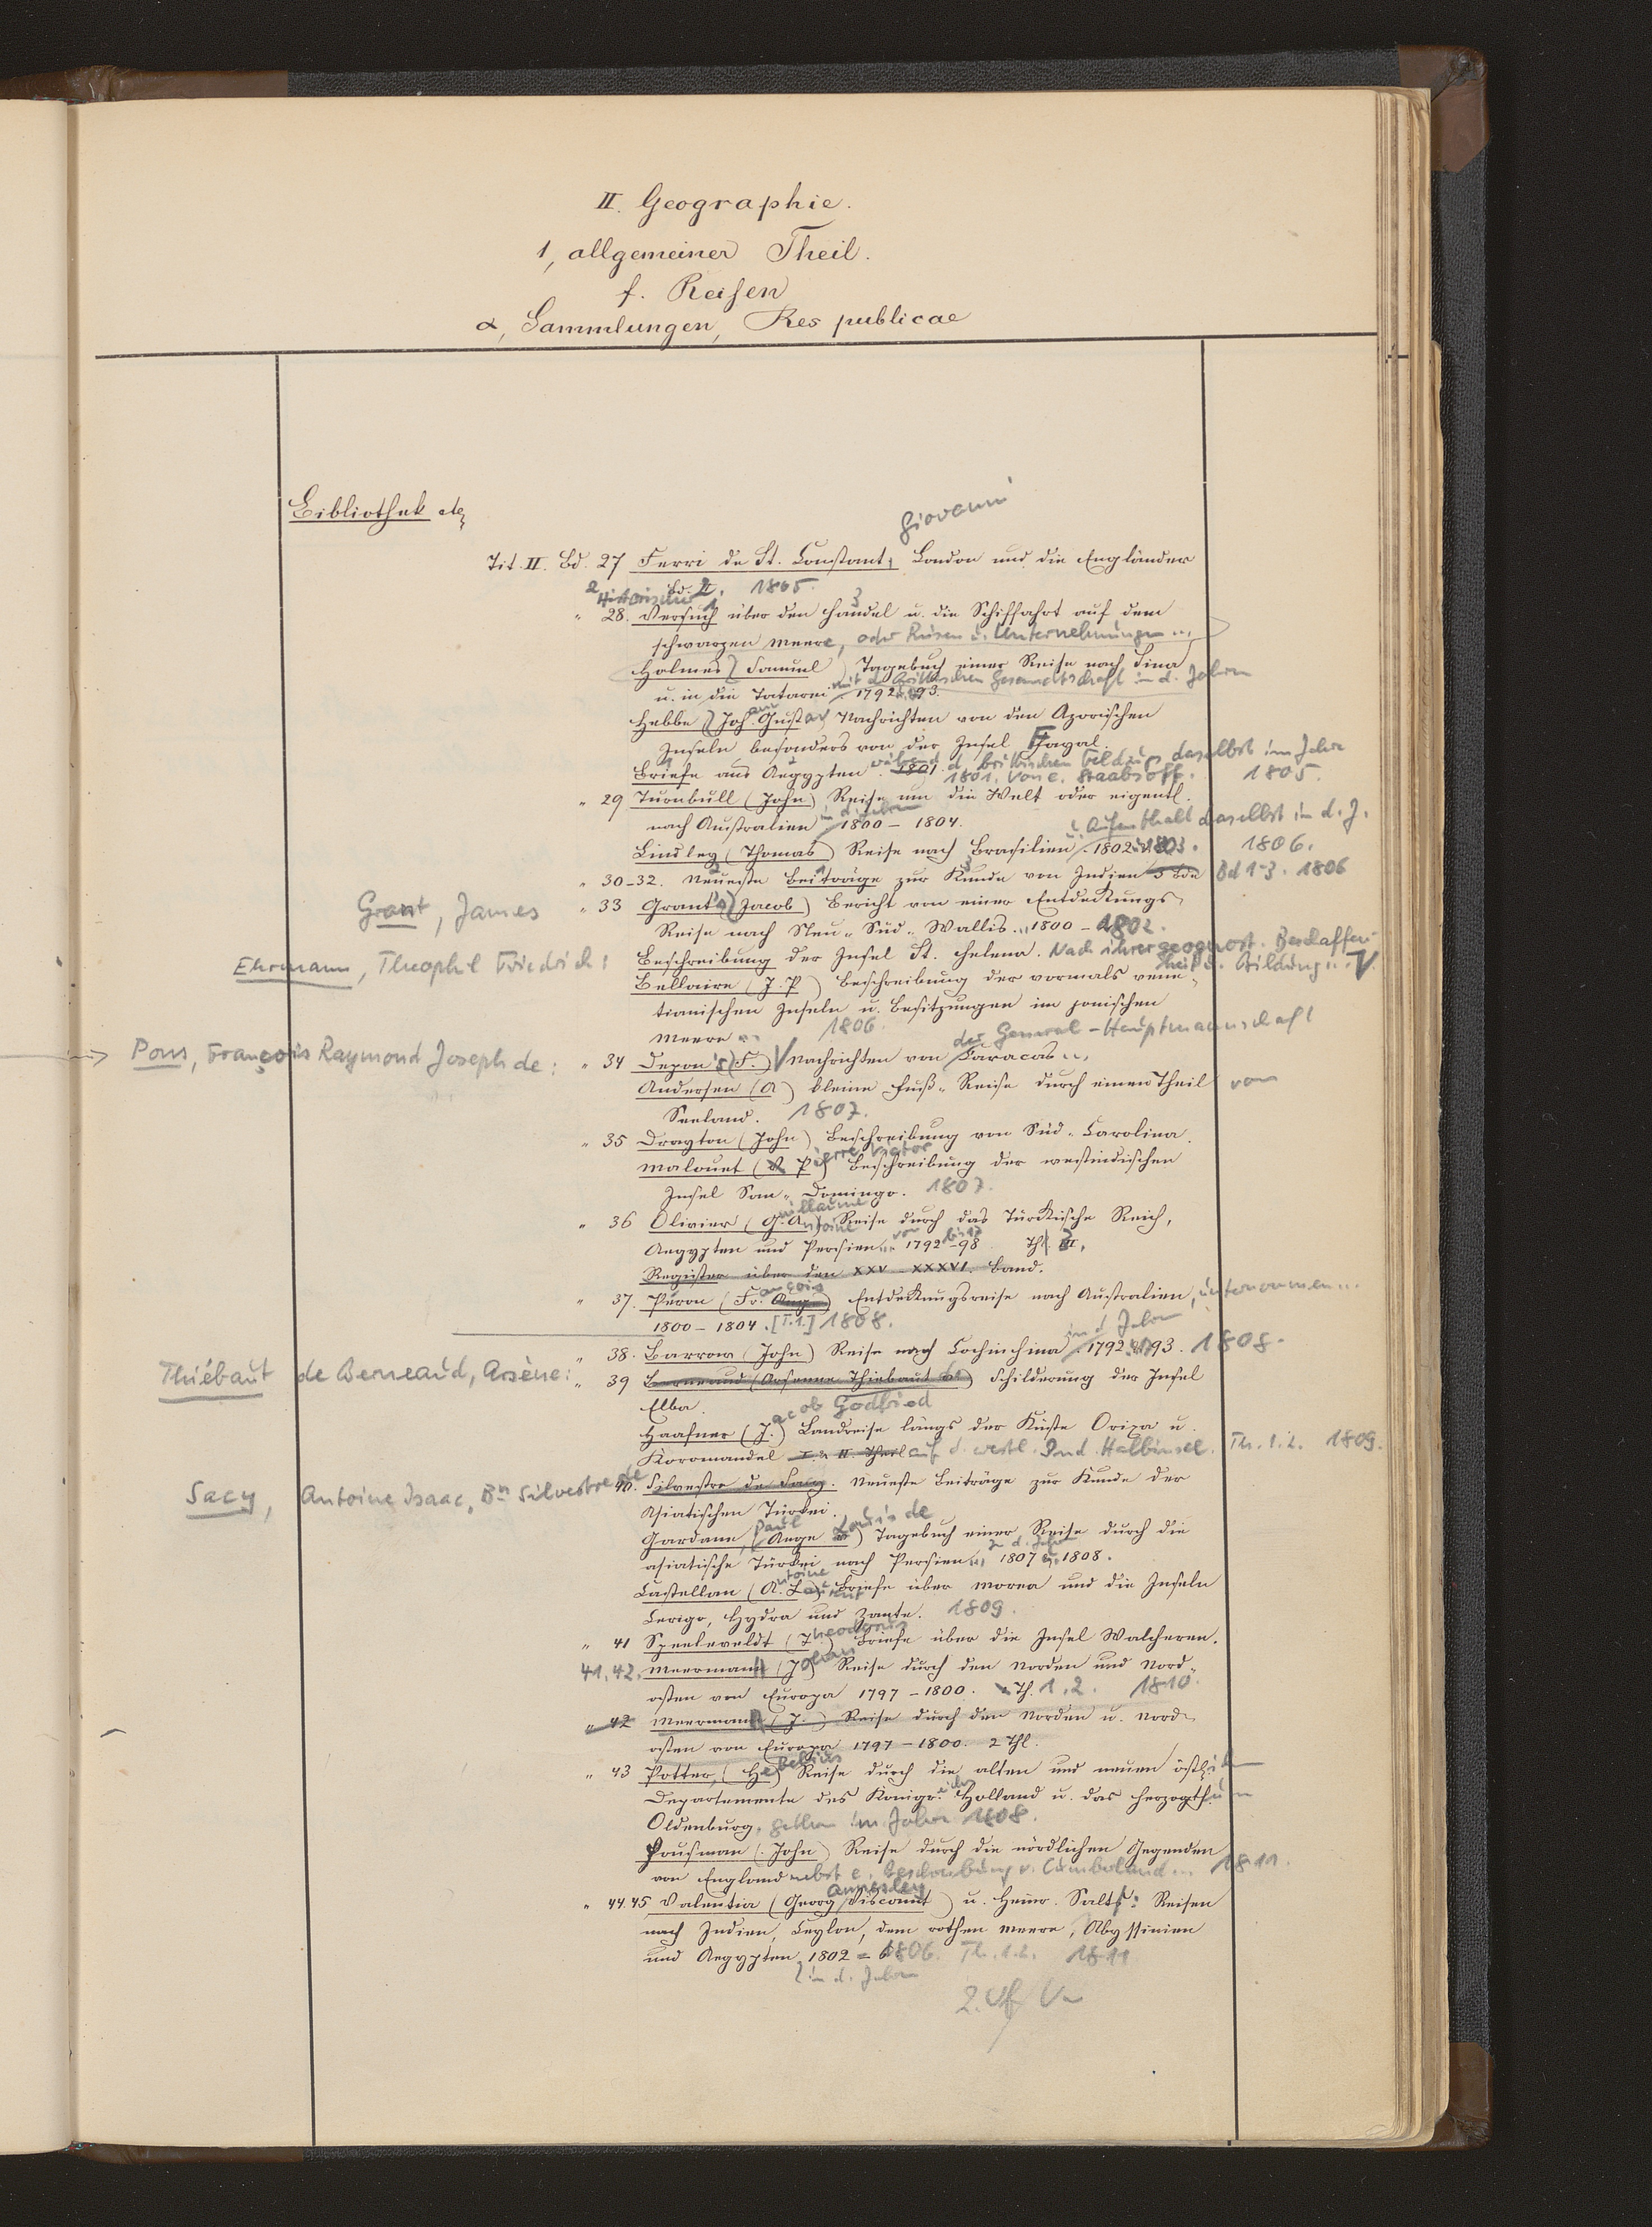 II. Geographie.
1, allgemeiner Theil.
f. Reisen
α, Sammlungen, Res publicae
Bibliothek etc
Giovanni
Tit. II. Bd. 27 Ferri de St. Constant, London und die Engländer
Bd. 2. 1805.
Historischer
" 28. Versuch über den Handel u. die Schiffahrt auf dem
schwarzen Meere, oder Reisen u. Unternehmungen ...
Holmes, Samuel) Tagebuch einer Reise nach Sina
u. in die Tatarei mit d. Brittischen Gesandtschaft in d. Jahren 1792 u. 93.
Hebbe (Johann Gustav) Nachrichten von den Azorischen
Inseln besonders von der Insel Fayal.
Briefe aus Aegypten während d. brittischen Feldzugs daselbst im Jahre
1801. Von e. Staabsoff. 1805.
" 29 Turnbull (John) Reise um die Welt oder eigentl.
nach Australien in d. Jahren 1800 - 1804.
u. Aufenthalt daselbst in d. J.
Lindley (Thomas) Reise nach Brasilien 1802 u. 1803. 1806.
" 30-32. Neueste Beiträge zur Kunde von Indien 3 Bde Bd 1-3. 1806
Grant, James " 33 Grant's (Jacob) Bericht von einer Entdeckungs
Reise nach Neu-Süd-Wallis ... 1800 - 1802.
Ehrmann, Theophil Friedrich: Beschreibung der Insel St. Helena. Nach ihrer geognost. Beschaffen-
heit u. Bildung ...
Bellaire (J. P.) Beschreibung der vormals vene-
tianischen Inseln u. Besitzungen im jonischen
Meere ... 1806.
Pons, François Raymond Joseph de: " 34 Depon's (F.) Nachrichten von der General-Hauptmannschaft Caracas ...
Andersen (A) kleine Fuß-Reise durch einen Theil von
Seeland. 1807.
" 35 Drayton (John) Beschreibung von Süd-Carolina.
Malouet (V. Pierre Victor) Beschreibung der westindischen
Insel San-Domingo. 1807.
" 36 Olivier (Guillaume Antoine) Reise durch das Türkische Reich,
Aegypten und Persien ... von 1792 bis 1798 Th. 3.
Register über den XXV-XXXVI. Band.
" 37. Péron (François Aug.) Entdeckungsreise nach Australien, unternommen ...
1800 - 1804. [T.1.] 1808.
" 38. Barrow (John) Reise nach Cochinchina in d. Jahren 1792 u. 1793. 1808.
Thiébaut de Berneaud, Arsène: " 39 Berneaud (Arsenne Thiebaut de) Schilderung der Insel
Elba.
Haafner (Jacob Godfried) Landreise längs der Küste Orixa u.
Koromandel I. u. II. Theil auf d. westl. Ind. Halbinsel. Th. 1.2. 1809.
Sacy, Antoine Isaac, Bn Silvestre de 40. Silvestre de Sacy. Neueste Beiträge zur Kunde der
Asiatischen Türkei.
Gardane, (Ange Paul Louis de) Tagebuch einer Reise durch die
asiatische Türkei nach Persien ... in d. Jahren 1807 u. 1808.
Castellan (Antoine Laurent) Briefe über Morea und die Inseln
Cerigo, Hydra und Zante. 1809.
" 41 Speeleveldt (Theodorus) Briefe über die Insel Walcheren.
41, 42. Meermann (Johan) Reise durch den Norden und Nord-
osten von Europa 1797 - 1800. Th. 1, 2. 1810.
" 42 Meermann (J.) Reise durch den Norden u. Nord-
osten von Europa 1797 - 1800. 2 Thl.
" 43 Potter, (Hebelius) Reise durch die alten und neuen östlichen
Departemente des Königreichs Holland u. das Herzogthum
Oldenburg, gethan im Jahre 1808.
Housman (John) Reise durch die nördlichen Gegenden
von England nebst e. Beschreibung v. Cumberland ... 1811.
" 44.45 Valentia (Georg Annesley Viscount) u. Heinr. Salt's: Reisen
nach Indien, Ceylon, dem rothen Meere, Abyssinien
und Aegypten, in d. Jahren 1802 - 1806. Th. 1.2. 1811